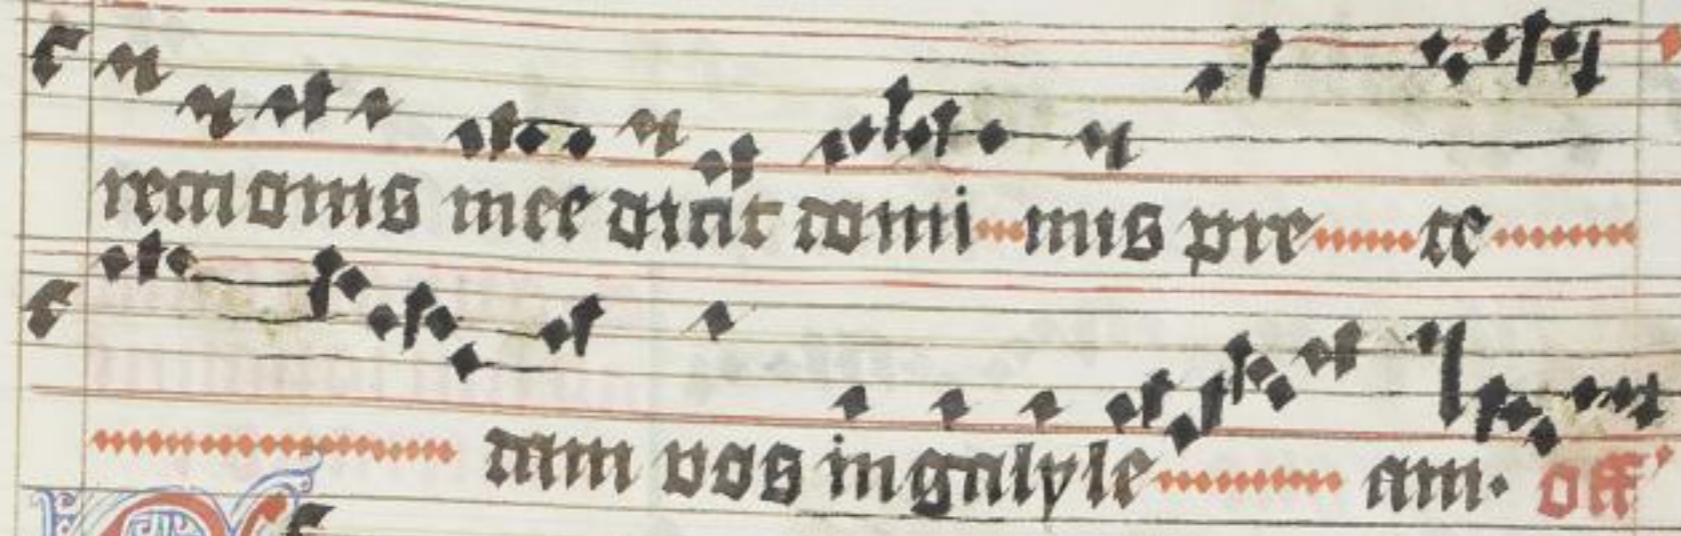 rectionis mee dicit domi nus pre ce
dam vos in galyle am. off'